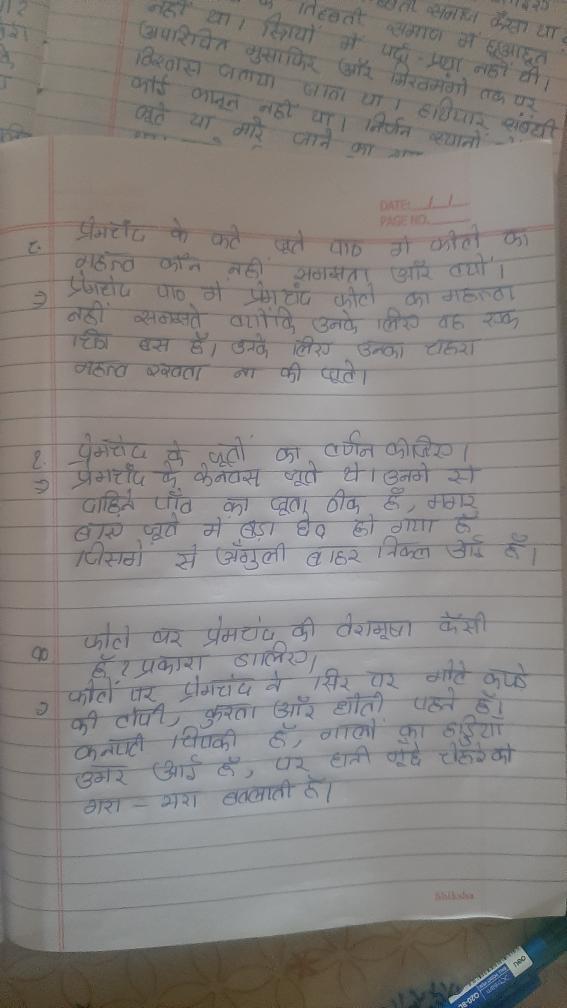 के तिब्बती समाज कैसा था?
नहीं था। स्त्रियों में पर्दा-प्रथा नहीं थी।
अपरिचित मुसाफिर और भिखमंगों तक पर
विश्वास जताया जाता था। हथियार संबंधी
कोई कानून नहीं था। निर्जन स्थानों
लूटे या मारे जाने का
DATE: / /
PAGE NO.
प्रेमचंद के फटे जूते पाठ में फोटो का
महत्व कौन नहीं समझता और क्यों।
⇒ प्रेमचंद पाठ में प्रेमचंद फोटो का महत्व
नहीं समझते क्योंकि उनके लिए वह एक
चित्र बस है। उनके लिए उनका चेहरा
महत्व रखता ना की जूते।
२. प्रेमचंद के जूतों का वर्णन कीजिए।
⇒ प्रेमचंद के केनवस जूते थे। उनमे से
दाहिने पाँव का जूता ठीक है, मगर
बाए जूते में बड़ा छेद हो गया है
जिसमे से अँगुली बाहर निकल आई है।
फोटो पर प्रेमचंद की वेशभूषा कैसी
है? प्रकाश डालिए।
फोटो पर प्रेमचंद ने सिर पर मोटे कपडे
की टोपी, कुरता और धोती पहने है।
कनपटी चिपकी है, गालों का हड्डियाँ
उभर आई है, पर घनी मूंछे चेहरे को
भरा - भरा बतलाती है।
Shiksha
neo